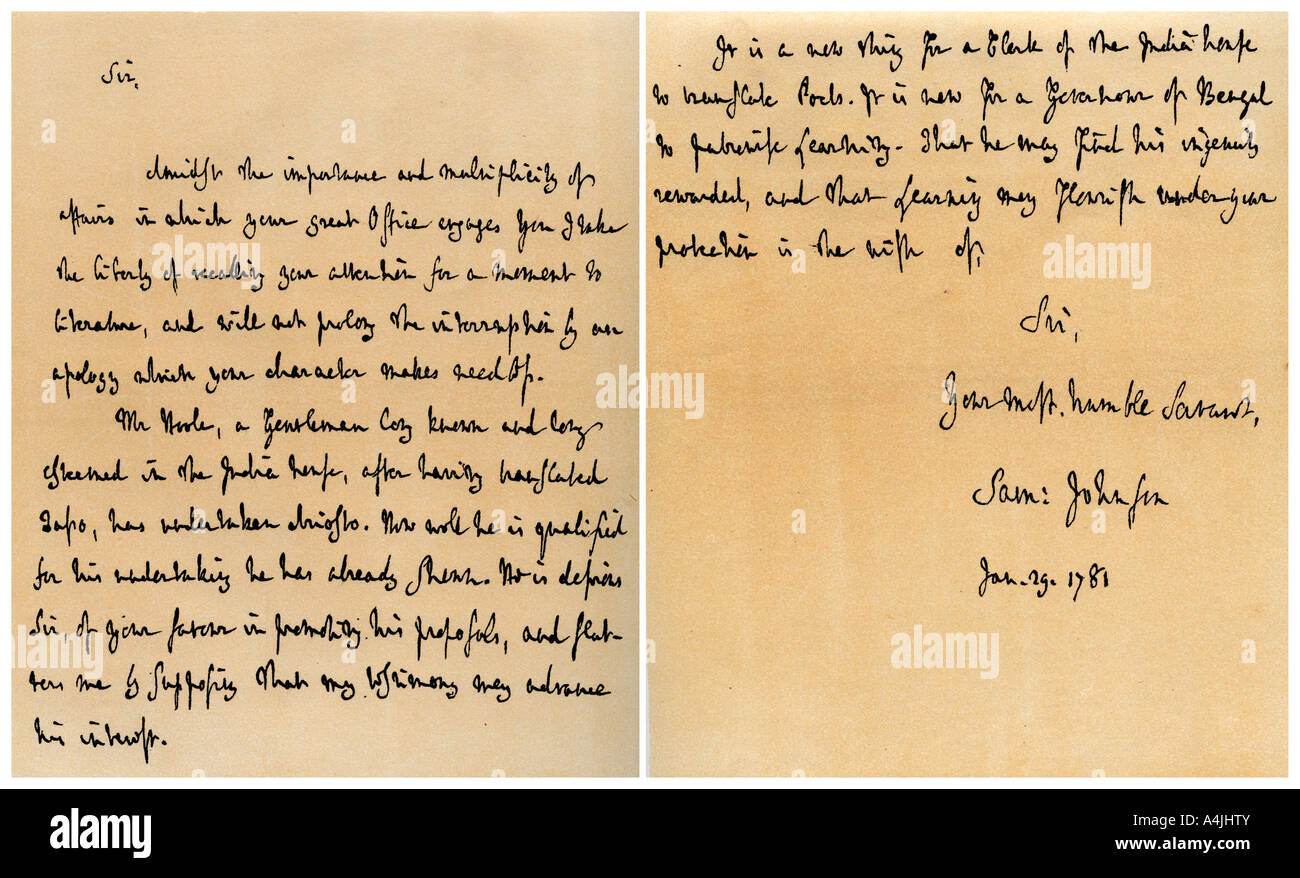 Sir,
Amidst the importance and multiplicity of
affairs in which your great Office engages you I take
the liberty of recalling your attention for a moment to
literature, and will not prolong the interruption by an
apology which your character makes needless.
Mr Hoole, a Gentleman long known and long
esteemed in the India house, after having translated
Tasso, has undertaken Ariosto. How well he is qualified
for his undertaking he has already shewn. He is desirous
Sir, of your favour in promoting his proposals, and flat-
ters me by supposing that my testimony may advance
his interest.
It is a new thing for a Clerk of the India house
to translate Poets. It is new for a Governour of Bengal
to patronise Learning. That he may find his ingenuity
rewarded, and that Learning may flourish under your
protection is the wish of,
Sir,
Your most humble Servant,
Sam: Johnson
Jan. 29. 1781
alamy
a
alamy stock photo
A4JHTY
www.alamy.com